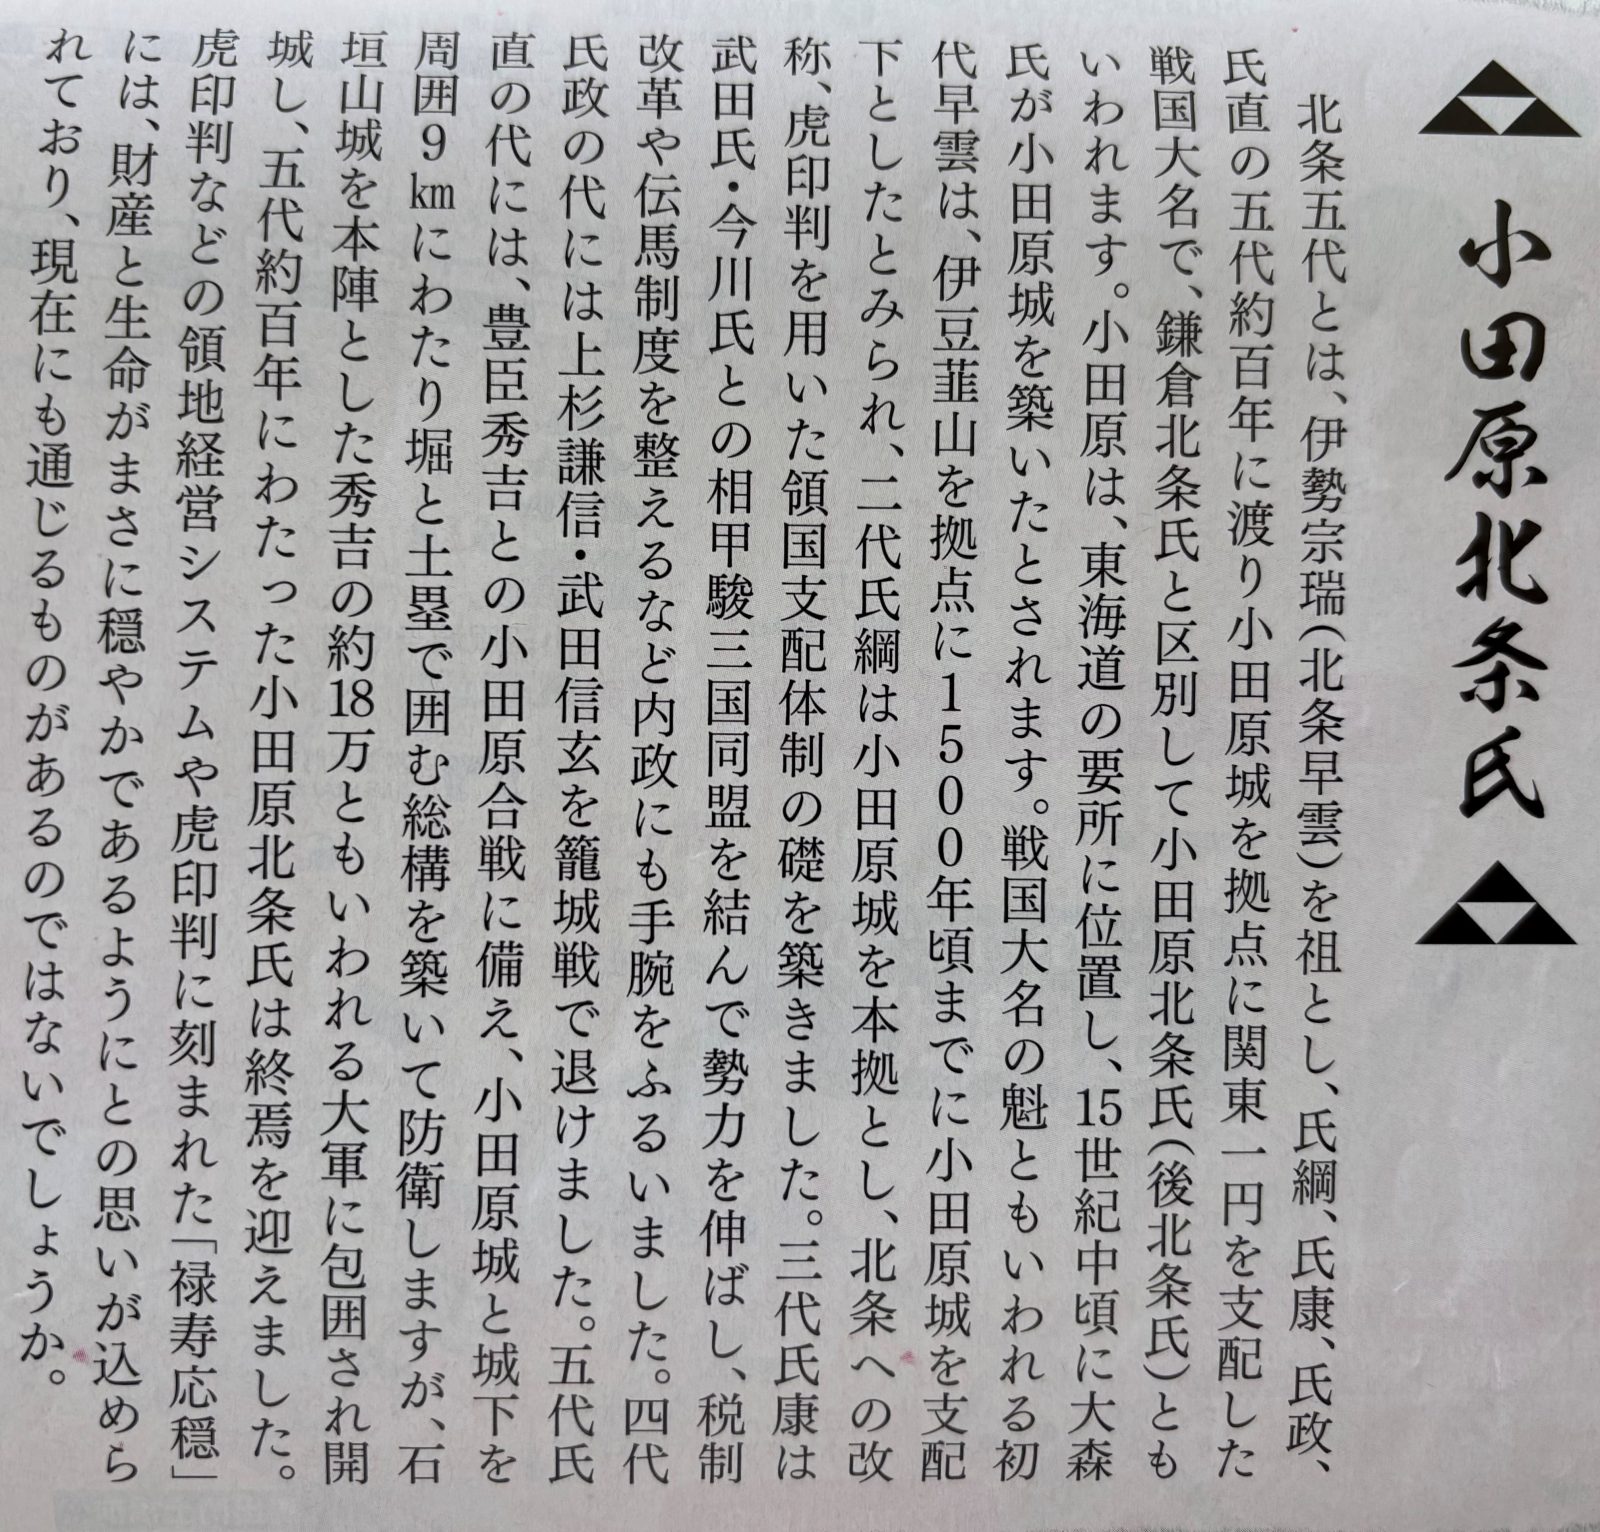 小田原北条氏
北条五代とは、伊勢宗瑞(北条早雲)を祖とし、氏綱、氏康、氏政、
氏直の五代約百年に渡り小田原城を拠点に関東一円を支配した
戦国大名で、鎌倉北条氏と区別して小田原北条氏(後北条氏)とも
いわれます。小田原は、東海道の要所に位置し、15世紀中頃に大森
氏が小田原城を築いたとされます。戦国大名の魁ともいわれる初
代早雲は、伊豆韮山を拠点に1500年頃までに小田原城を支配
下としたとみられ、二代氏綱は小田原城を本拠とし、北条への改
称、虎印判を用いた領国支配体制の礎を築きました。三代氏康は
武田氏・今川氏との相甲駿三国同盟を結んで勢力を伸ばし、税制
改革や伝馬制度を整えるなど内政にも手腕をふるいました。四代
氏政の代には上杉謙信・武田信玄を籠城戦で退けました。五代氏
直の代には、豊臣秀吉との小田原合戦に備え、小田原城と城下を
周囲9㎞にわたり堀と土塁で囲む総構を築いて防衛しますが、石
垣山城を本陣とした秀吉の約18万ともいわれる大軍に包囲され開
城し、五代約百年にわたった小田原北条氏は終焉を迎えました。
虎印判などの領地経営システムや虎印判に刻まれた「禄寿応穏」
には、財産と生命がまさに穏やかであるようにとの思いが込めら
れており、現在にも通じるものがあるのではないでしょうか。